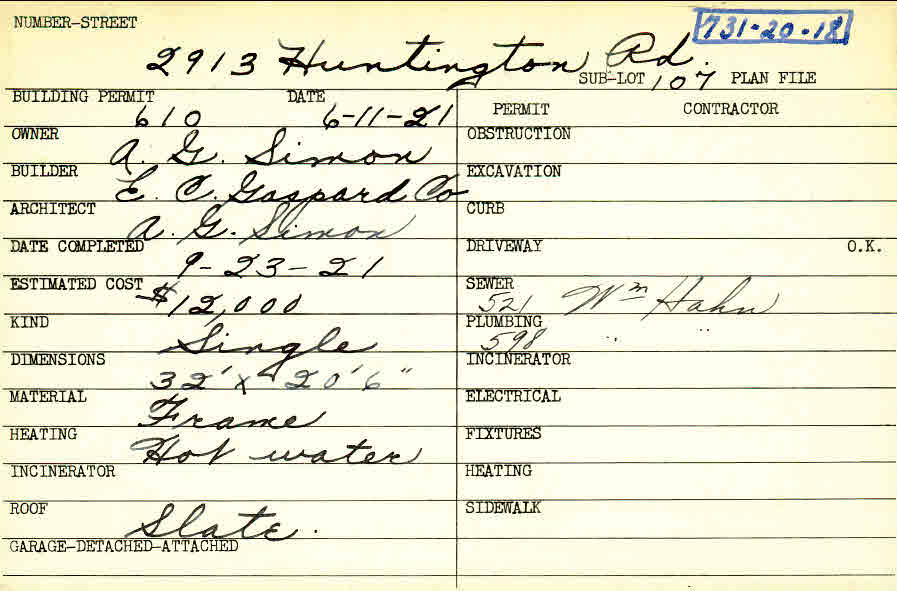 NUMBER-STREET 731-20-18
2913 Huntington Rd.
SUB-LOT 107 PLAN FILE
BUILDING PERMIT 610 DATE 6-11-21
OWNER A. G. Simon
BUILDER E. C. Gaspard Co
ARCHITECT A. G. Simon
DATE COMPLETED 9-23-21
ESTIMATED COST $12,000
KIND Single
DIMENSIONS 32' x 20'6"
MATERIAL Frame
HEATING Hot water
INCINERATOR
ROOF Slate.
GARAGE-DETACHED-ATTACHED
PERMIT CONTRACTOR
OBSTRUCTION
EXCAVATION
CURB
DRIVEWAY O.K.
SEWER 521 Wm Hahn
PLUMBING 598 " "
INCINERATOR
ELECTRICAL
FIXTURES
HEATING
SIDEWALK